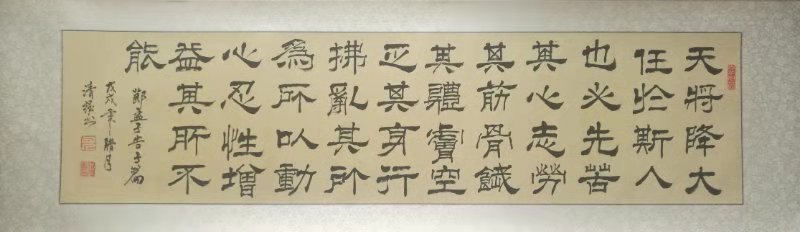 天將降大
任於斯人
也必先苦
其心志勞
其筋骨餓
其體膚空
乏其身行
拂亂其所
為所以動
心忍性增
益其所不
能
孟子告子篇
戊戌臘月